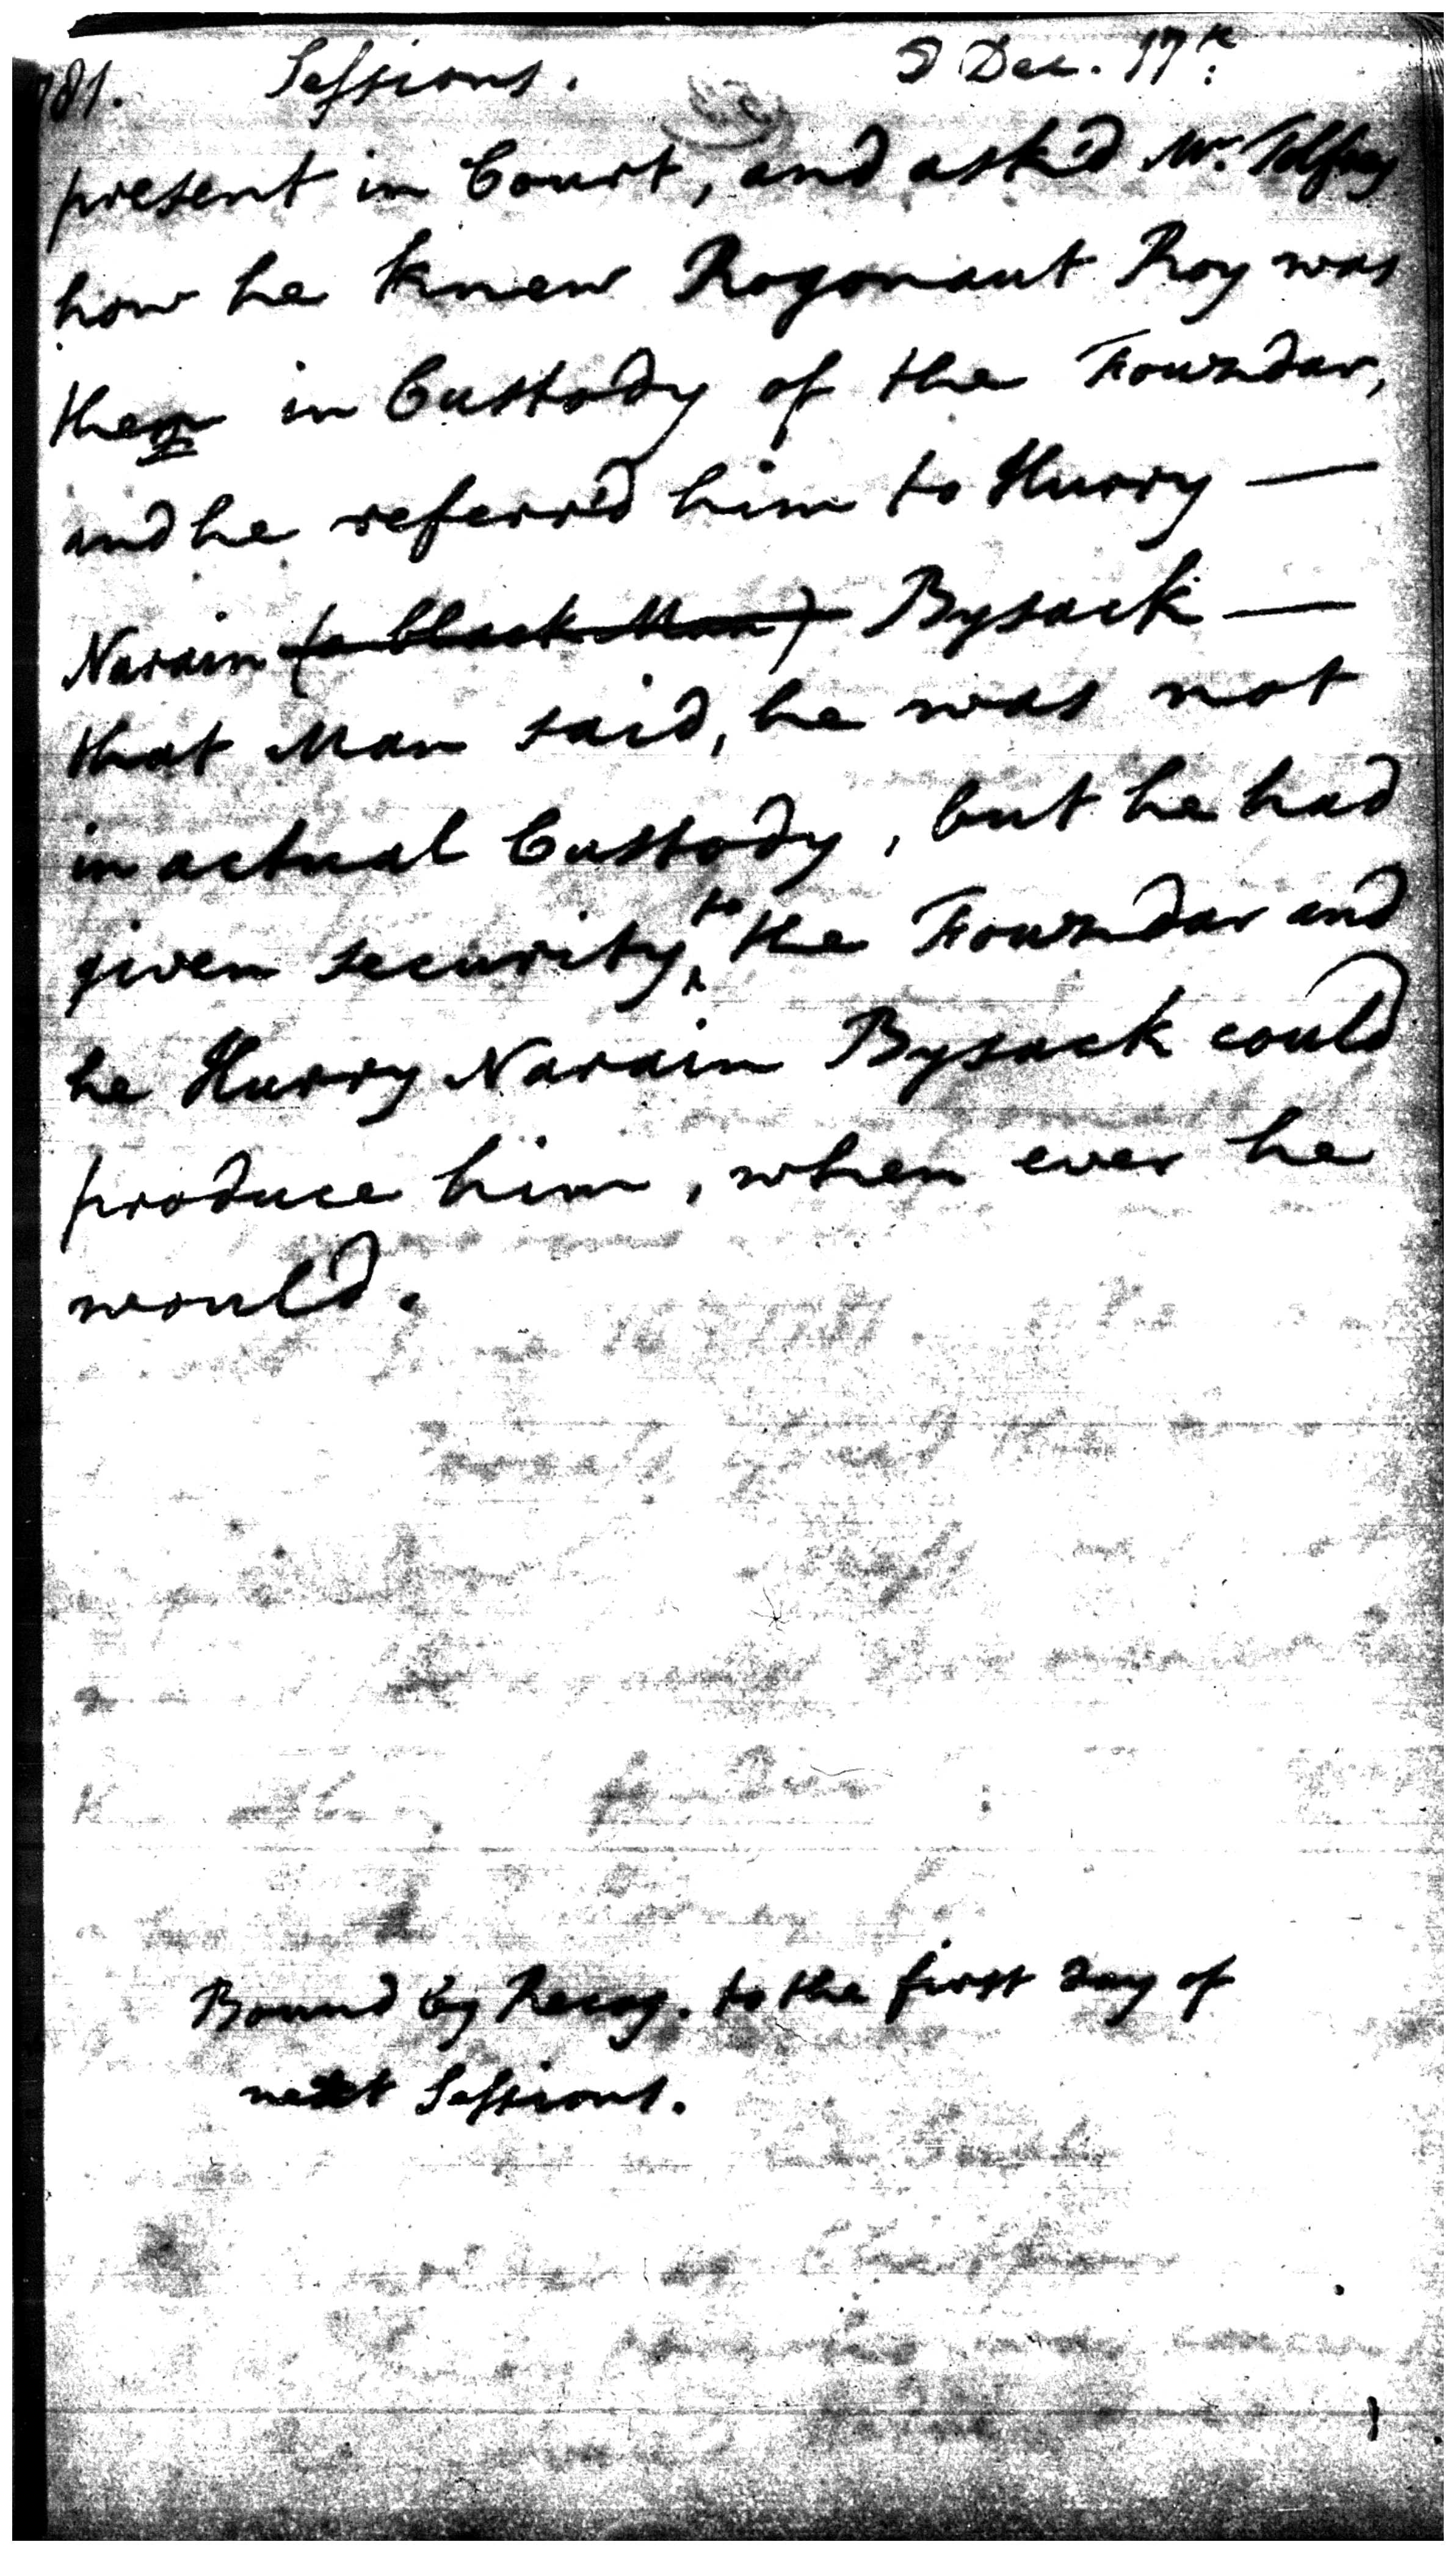 781. Sessions. Dec. 17th.
present in Court, and ask'd Mr. Tolfrey
how he knew Rogonaut Roy was
then in Custody of the Fouzdar,
and he referr'd him to Hurry —
Narain (a black Man) Bysack —
that Man said, he was not
in actual Custody, but he had
given security to the Fouzdar and
he Hurry Narain Bysack could
produce him, when ever he
would.
Bound by Recog. to the first day of
next Sessions.